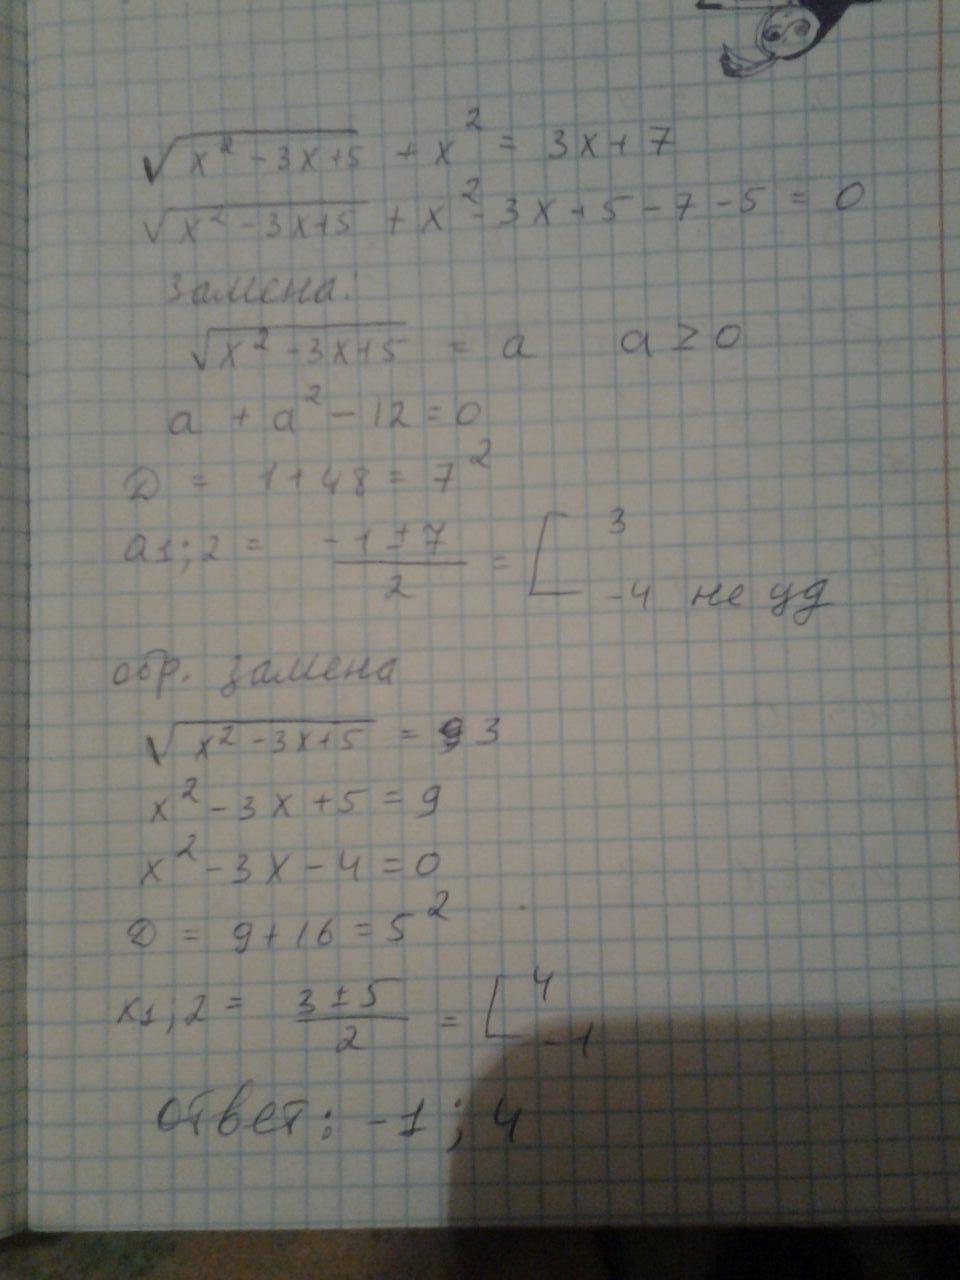 √(x² - 3x + 5) + x² = 3x + 7
√(x² - 3x + 5) + x² - 3x + 5 - 7 - 5 = 0
замена:
√(x² - 3x + 5) = a a ≥ 0
a + a² - 12 = 0
D = 1 + 48 = 7²
a1;2 = (-1 ± 7)/2 = [ 3
-4 не уд
обр. замена
√(x² - 3x + 5) = 3
x² - 3x + 5 = 9
x² - 3x - 4 = 0
D = 9 + 16 = 5²
x1;2 = (3 ± 5)/2 = [ 4
-1
ответ: -1; 4